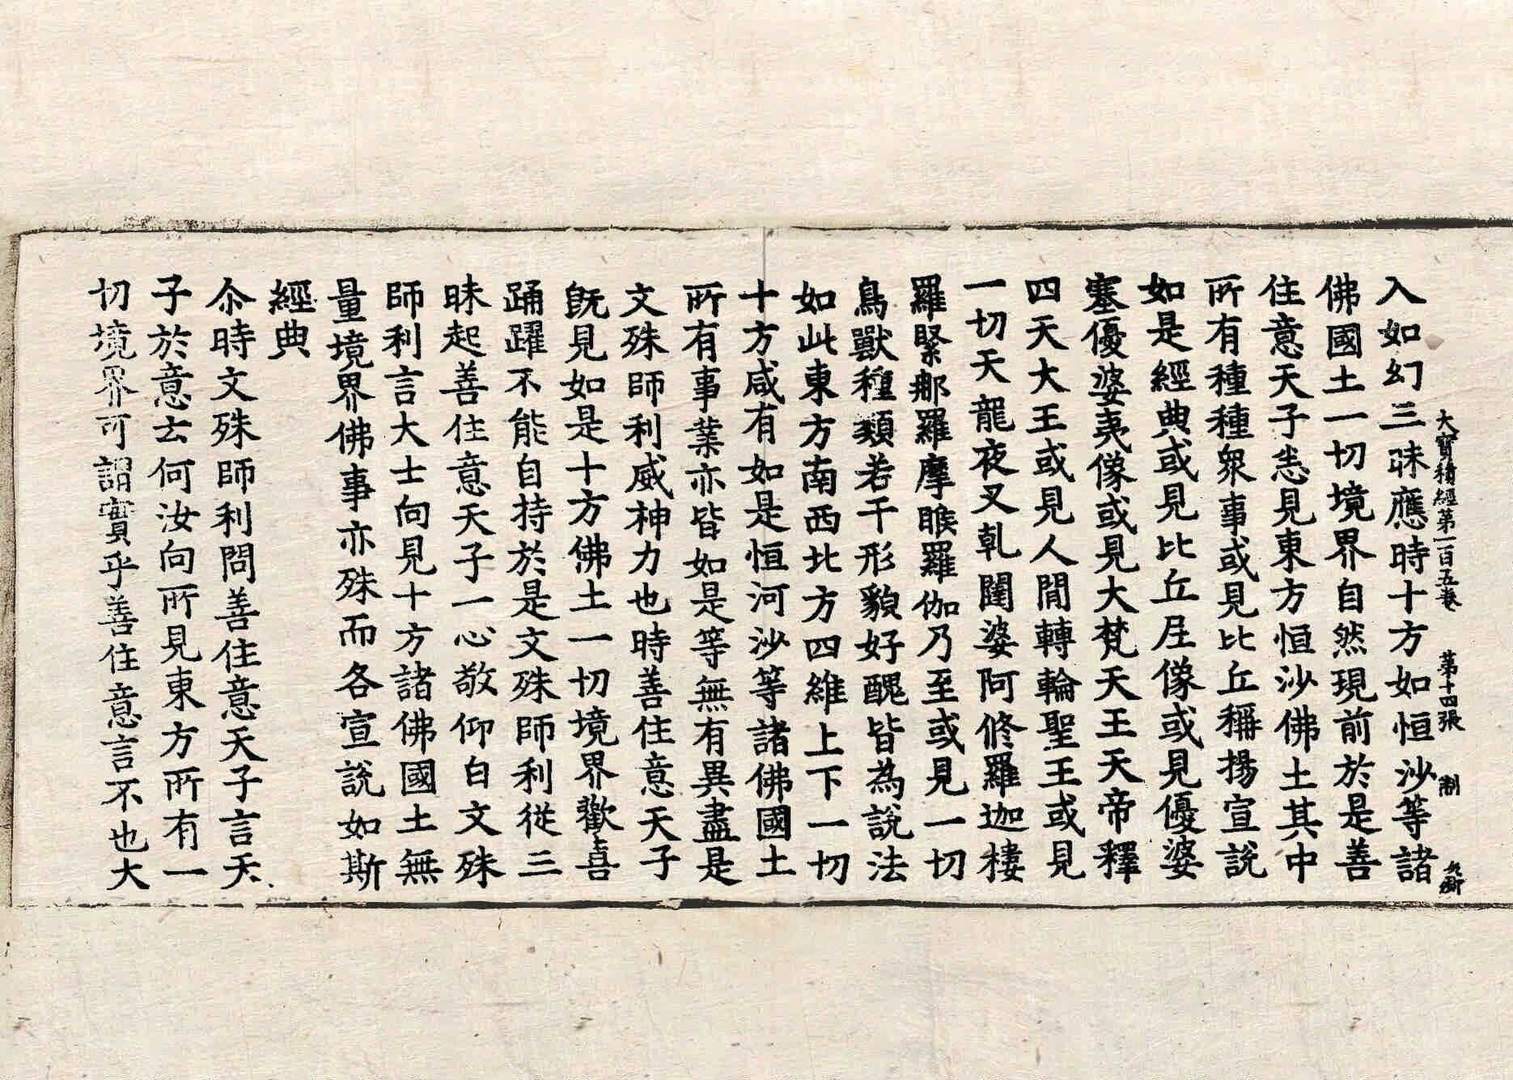 大寶積經第一百五卷　第十四張　制
入如幻三昧應時十方如恒沙等諸
佛國土一切境界自然現前於是善
住意天子悉見東方恒沙佛土其中
所有種種衆事或見比丘稱揚宣說
如是經典或見比丘尼像或見優婆
塞優婆夷像或見大梵天王天帝釋
四天大王或見人間轉輪聖王或見
一切天龍夜叉乹闥婆阿脩羅迦樓
羅緊那羅摩睺羅伽乃至或見一切
鳥獸種類若干形貌好醜皆為說法
如此東方南西北方四維上下一切
十方咸有如是恒河沙等諸佛國土
所有事業亦皆如是等無有異盡是
文殊師利威神力也時善住意天子
旣見如是十方佛土一切境界歡喜
踊躍不能自持於是文殊師利從三
昧起善住意天子一心敬仰白文殊
師利言大士向見十方諸佛國土無
量境界佛事亦殊而各宣說如斯
經典
尒時文殊師利問善住意天子言天
子於意云何汝向所見東方所有一
切境界可謂實乎善住意言不也大